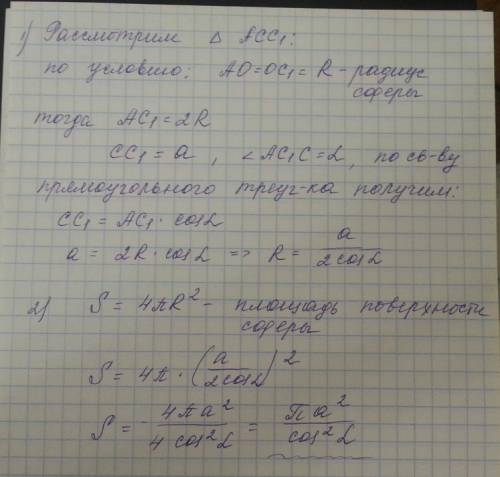 1) Рассмотрим △ ACC₁:
по условию: AO=OC₁= R - радиус
сферы
тогда AC₁=2R
CC₁ = a , ∠AC₁C=α, по св-ву
прямоугольного треуг-ка получим:
CC₁ = AC₁ · cosα
a = 2R · cosα => R = a / 2cosα
2) S = 4πR² - площадь поверхности
сферы
S = 4π · (a / 2cosα)²
S = 4πa² / 4cos²α = πa² / cos²α